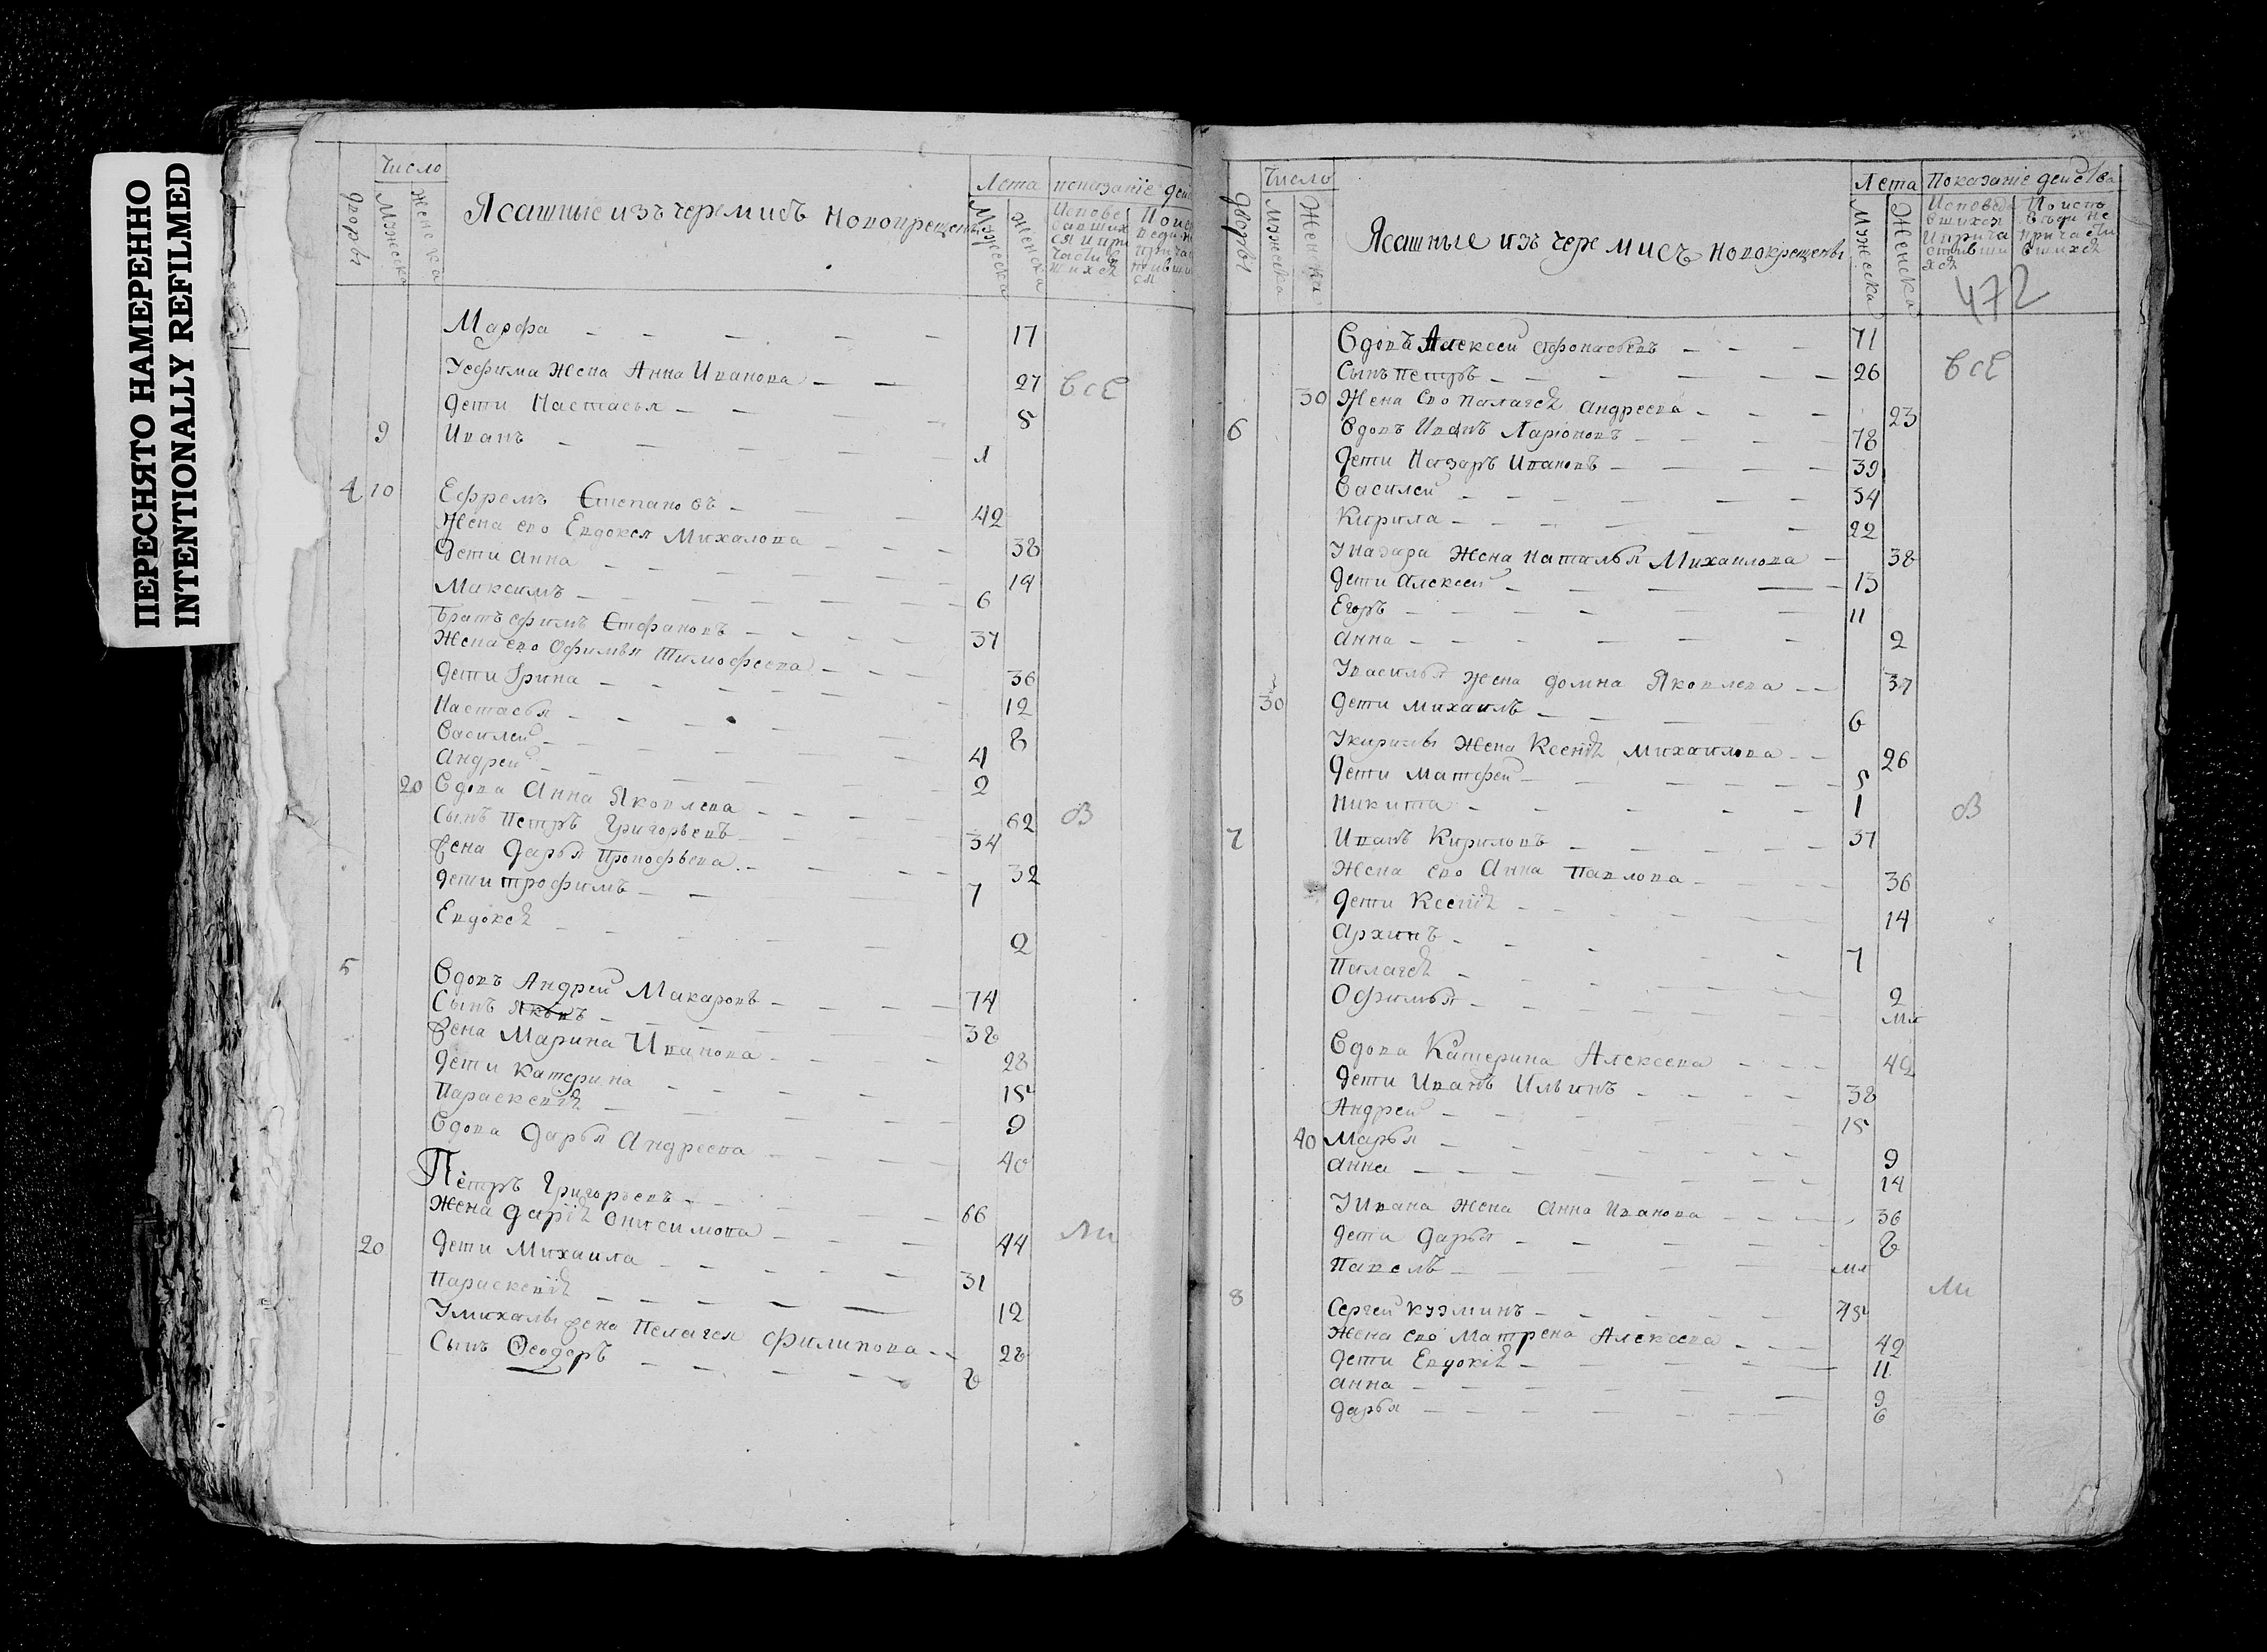 ПЕРЕСНЯТО НАМЕРЕННО
INTENTIONALLY REFILMED
число
дворвы
Мужеска
женска
Ясашные изъ черемисъ новокрещены
Лета
Мужеска
женска
показанïе дей
Исповедавших ся и причастившихся
Марфа 17
Уефима Жена Анна Иванова 27 всѣ
дети Настасья 5
9 Иванъ 1
4 10 Ефремъ Степановъ 42
Жена ево Евдокея Михалова 38
дети анна 14
Максимъ 6
Братъ ефимъ Стефановъ 37
Жена ево Офимья Тимофеева 36
дети Iрина 12
Настасья 8
Василей 4
Андрей 2
20 Вдова Анна Яковлева 62 в
Сынъ Петръ Григорьевъ 34
жена Дарья Прокофьева 32
дети трофимъ 7
Евдокея 2
5 Вдовъ Андрей Макаровъ 74
Сынъ Яковъ 38
жена Марина Иванова 28
дети Катерина 15
Параскевия 9
Вдова Дарья Андреева 40
Петръ Григорьевъ 66
Жена дарiя Онисимова 44 ли
20 дети Михаила 31
Параскевiя 12
Умихалы жена Пелагея Филипова 28
Сынъ Ѳеодоръ 8
число
дворвы
Мужеска
Женска
Ясашные изъ черемисъ новокрещены
Лета
Мужеска
Женска
Показанiе действа
Исповедавшихся и причастившихся
По исповеди не причастившихся
472
Вдовъ Алексей Афонасьевъ 71
Сынъ петръ 26 всѣ
30 Жена ево Палагея андреева 23
6 Вдовъ Иванъ Ларiоновъ 78
дети Назаръ Ивановъ 39
Василей 34
Кирила 22
Уназара Жена Наталья Михаилова 38
дети Алексей 13
Егоръ 11
анна 2
Увасилья жена домна Яковлева 37
30 дети михаилъ 6
Укирилы Жена Ксенiя Михаилова 26
дети Матфей 5
Никита 1 в
7 Иванъ Кириловъ 37
Жена ево Анна Павлова 36
дети Ксенiя 14
Архипъ 7
Палагея 2
Офимья мл
Вдова Катерина Алексеева 42
дети Иванъ Ильинъ 38
Андрей 15
40 Марья 9
анна 14
Уивана жена Анна Иванова 36
дети дарья 8
Павелъ мл
ли
8 Сергей кузминъ 45
Жена ево Матрена Алексеева 42
дети Евдокiя 11
анна 9
дарья 6